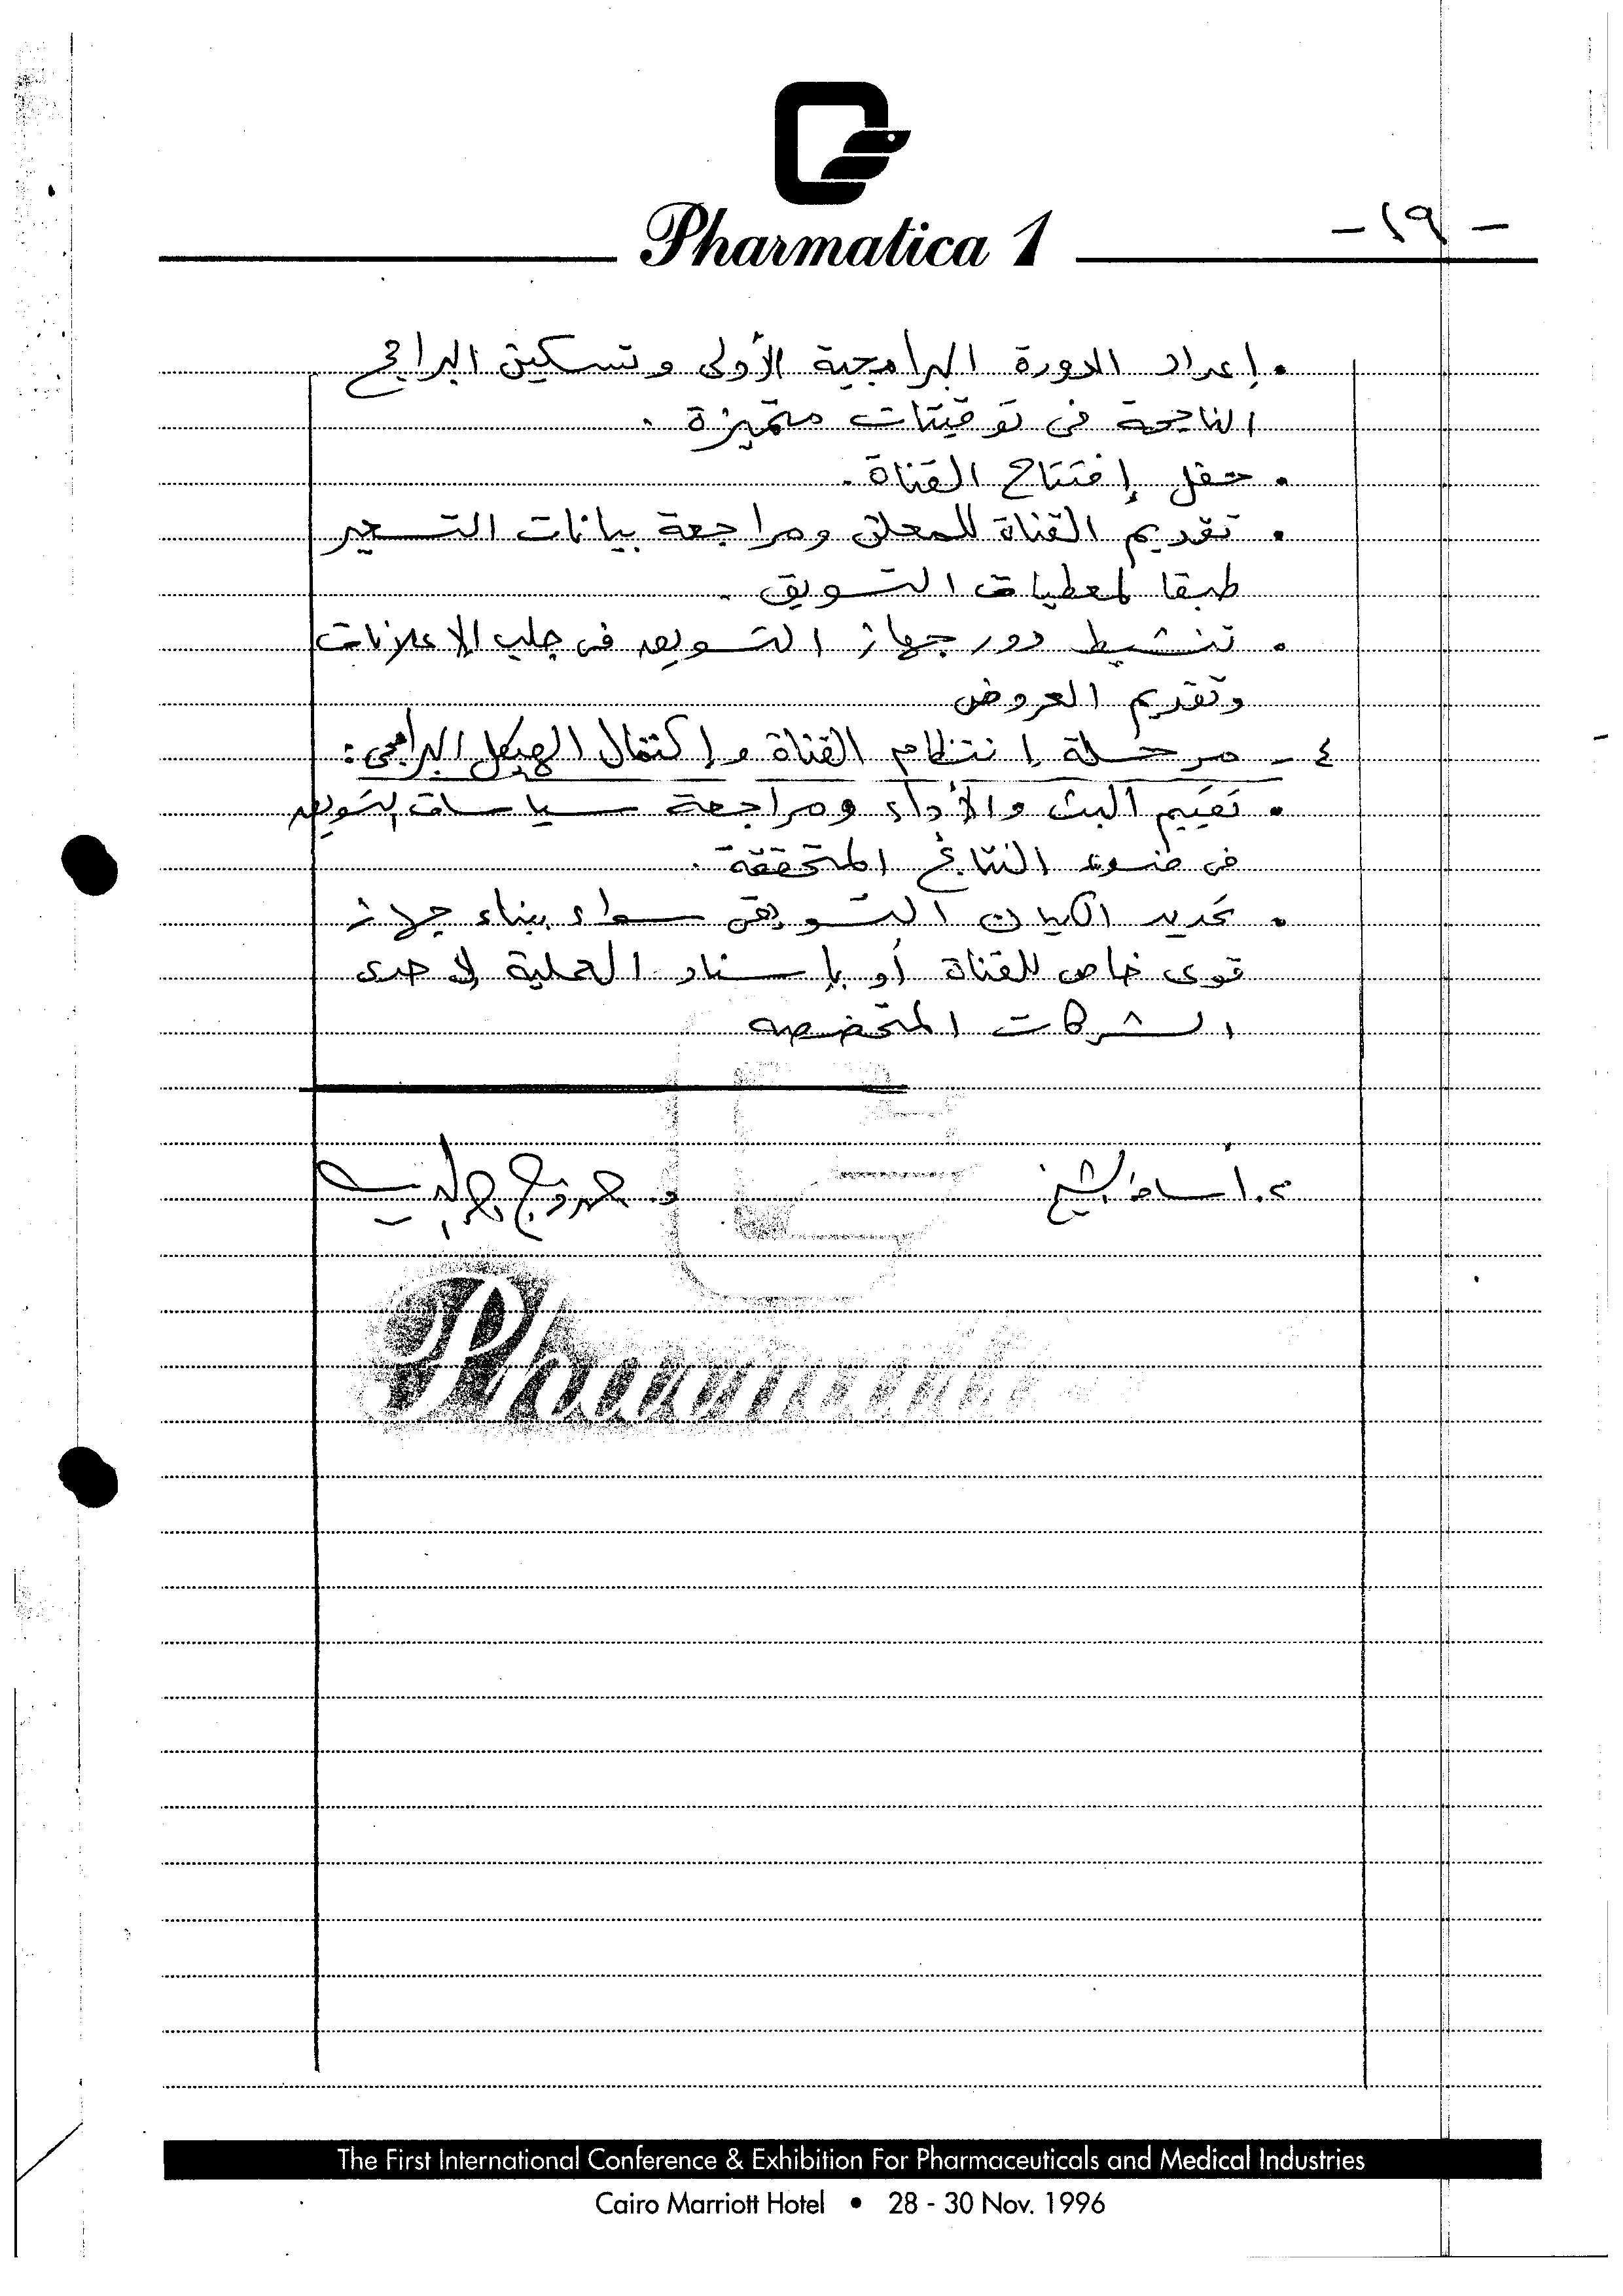 Pharmatica 1
- ١٩ -
• إعداد الدورة البرامجية الأولى وتسكين البرامج
الناجحة فى توقيتات متميزة .
• حفل إفتتاح القناة .
• تقديم القناة للمعلن ومراجعة بيانات التسعير
طبقا لمعطيات التسويق .
• تنشيط دور جهاز التسويق فى جلب الإعلانات
وتقديم العروض
٤ - مرحلة إنتظام القناة وإكتمال الهيكل البرامجى :
• تقييم البث والأداء ومراجعة سياسات التسويق
فى ضوء النتائج المتحققة .
• تحديد الكيان التسويقى سواء ببناء جهاز
قوى خاص للقناة أو بإسناد العملية لإحدى
الشركات المتخصصه
الشيخ
Pharmati
The First International Conference & Exhibition For Pharmaceuticals and Medical Industries
Cairo Marriott Hotel • 28 - 30 Nov. 1996